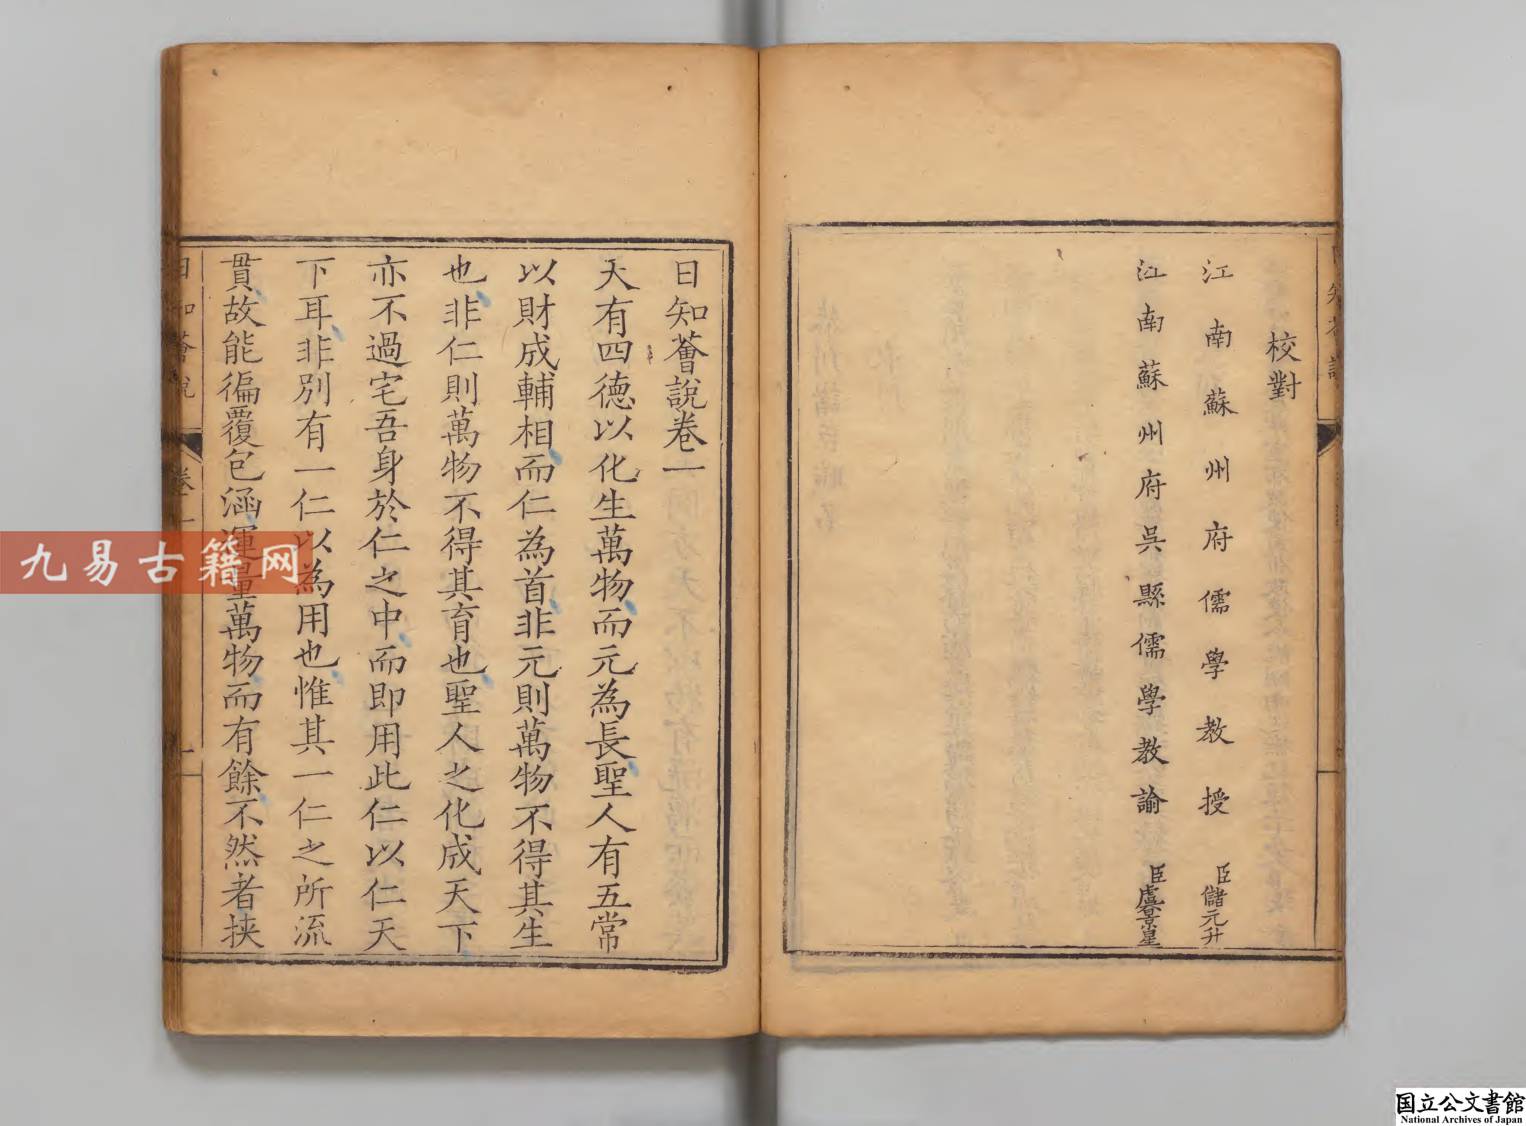 校對
江南蘇州府儒學教授臣儲元升
江南蘇州府吳縣儒學教諭臣盧景星
日知薈說卷一
天有四德以化生萬物而元為長聖人有五常
以財成輔相而仁為首非元則萬物不得其生
也非仁則萬物不得其育也聖人之化成天下
亦不過宅吾身於仁之中而即用此仁以仁天
下耳非別有一仁以為用也惟其一仁之所流
貫故能徧覆包涵運量萬物而有餘不然者挟
日知薈說
卷一
一
九易古籍网
国立公文書館
National Archives of Japan